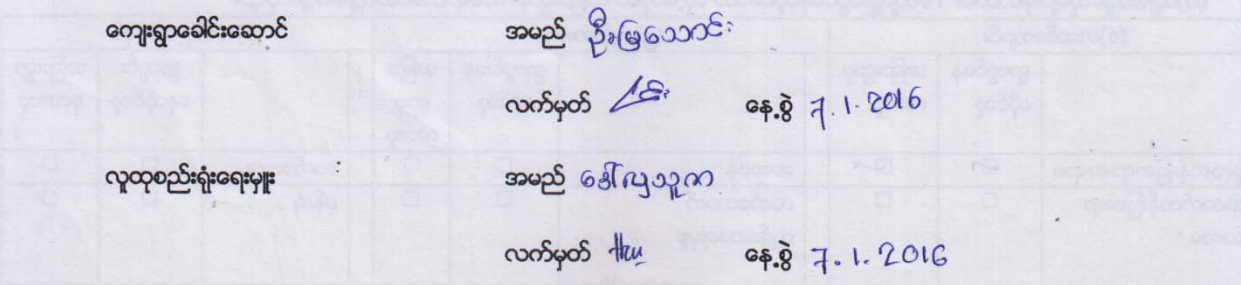 ကျေးရွာခေါင်းဆောင် အမည် ဦးမြသောင်း
လက်မှတ် နေ့စွဲ 7.1.2016
လူထုစည်းရုံးရေးမှူး အမည် ဒေါ်လှသူဇာ
လက်မှတ် နေ့စွဲ 7.1.2016